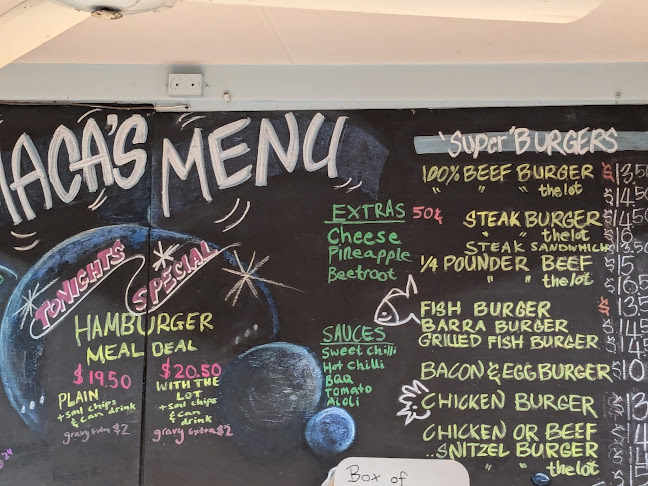 MACA'S MENU
TONIGHTS SPECIAL
HAMBURGER
MEAL DEAL
$19.50
PLAIN
+ Sml chips
& can drink
gravy extra $2
$20.50
WITH THE
LOT
+ Sml chips
& can
drink
gravy extra $2
EXTRAS 50¢
Cheese
Pineapple
Beetroot
SAUCES
Sweet chilli
Hot chilli
BBQ
Tomato
Aioli
'Super' BURGERS
100% BEEF BURGER $13.50
" " " the lot $14.50
STEAK BURGER $14.50
" " the lot
STEAK SANDWHICH
1/4 POUNDER BEEF $15
" " the lot
FISH BURGER
BARRA BURGER
GRILLED FISH BURGER
BACON & EGG BURGER
CHICKEN BURGER
CHICKEN OR BEEF
..SNITZEL BURGER
" " the lot
Box of